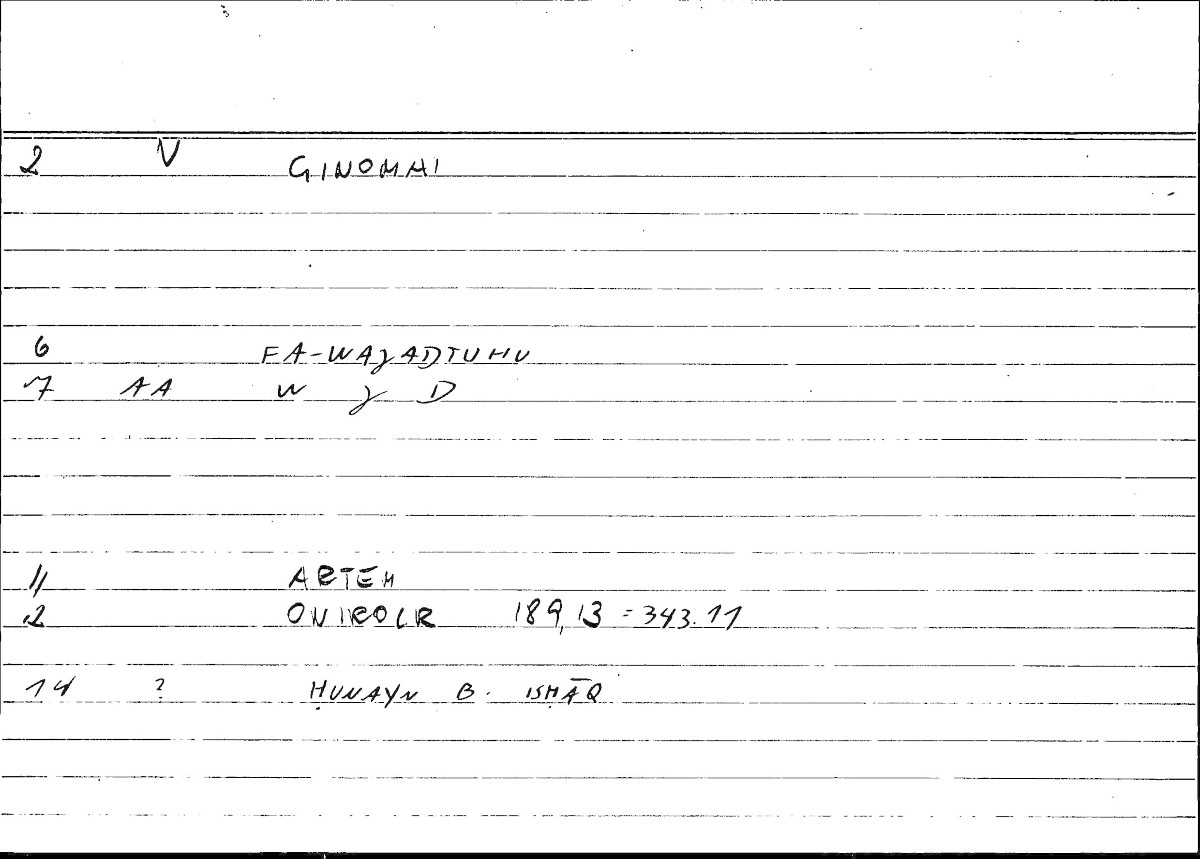 2 V GINOMAI
6 FA-WAJADTUHU
7 AA W J D
11 ARTEM
12 ONIROCR 189,13 = 343.11
14 ? ḤUNAYN B. ISḤĀQ